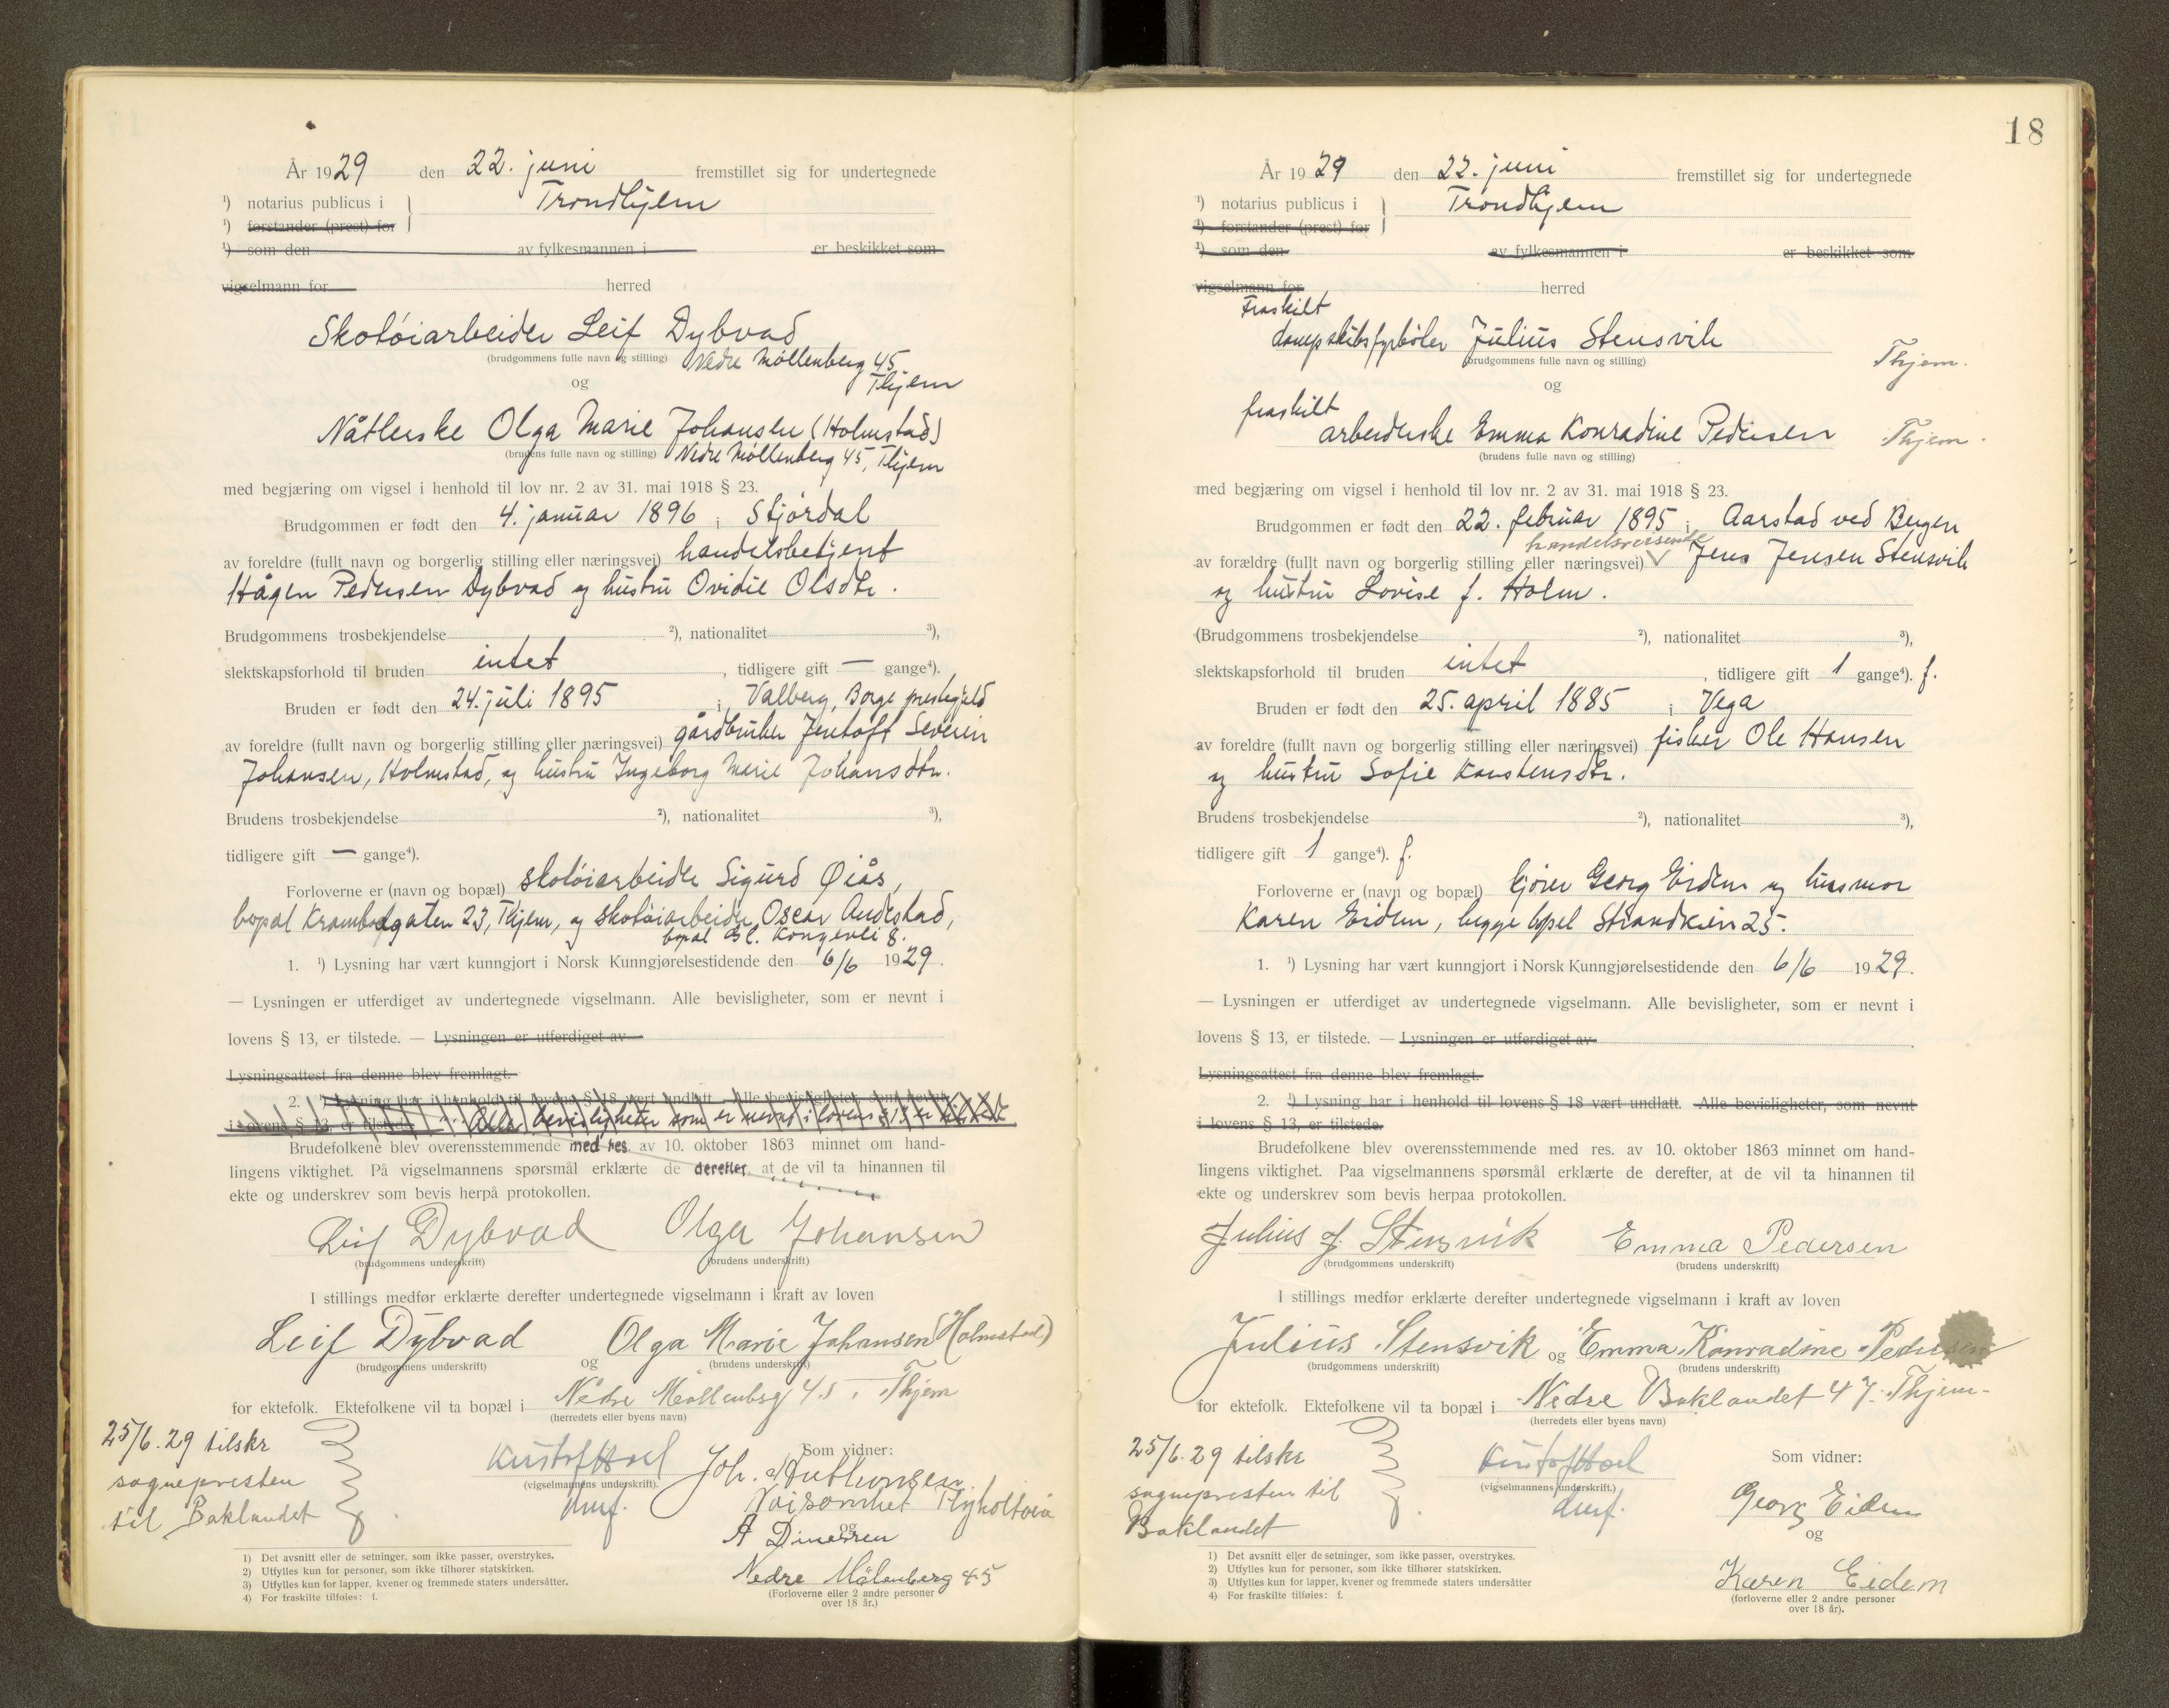 År 1929 den 22. juni fremstillet sig for undertegnede
¹) notarius publicus i Trondhjem
¹) forstander (prest) for
¹) som den av fylkesmannen i er beskikket som
vigselmann for herred
Skotøiarbeider Leif Dybvad
(brudgommens fulle navn og stilling) Nedre Møllenberg 45
og Thjem
Nåtlerske Olga Marie Johansen (Holmstad)
(brudens fulle navn og stilling) Nedre Møllenberg 45, Thjem
med begjæring om vigsel i henhold til lov nr. 2 av 31. mai 1918 § 23.
Brudgommen er født den 4. januar 1896 i Stjørdal
av foreldre (fullt navn og borgerlig stilling eller næringsvei) handelsbetjent
Hågen Pedersen Dybvad og hustru Ovidie Olsdtr.
Brudgommens trosbekjendelse ²), nationalitet ³),
slektskapsforhold til bruden intet, tidligere gift — gange⁴).
Bruden er født den 24. juli 1895 i Valberg, Borge prestegjeld
av foreldre (fullt navn og borgerlig stilling eller næringsvei) gårdbruker Jentoft Severin
Johansen, Holmstad, og hustru Ingeborg Marie Johansdtr.
Brudens trosbekjendelse ²), nationalitet ³),
tidligere gift — gange⁴).
Forloverne er (navn og bopæl) skotøiarbeider Sigurd Øiås,
bopæl Krambodgaten 23, Thjem, og skotøiarbeider Oscar Andestad,
bopæl Gl. Kongevei 8.
1. ¹) Lysning har vært kunngjort i Norsk Kunngjørelsestidende den 6/6 1929.
— Lysningen er utferdiget av undertegnede vigselmann. Alle bevisligheter, som er nevnt i
lovens § 13, er tilstede. — Lysningen er utferdiget av
Lysningsattest fra denne blev fremlagt.
2. ¹) Lysning har i henhold til lovens § 18 vært undlatt. Alle bevisligheter, som nevnt
i lovens § 13, er tilstede. Alle bevisligheter som er nevnt i lovens § 13 er tilstede
Brudefolkene blev overensstemmende med res. av 10. oktober 1863 minnet om hand-
lingens viktighet. På vigselmannens spørsmål erklærte de derefter, at de vil ta hinannen til
ekte og underskrev som bevis herpå protokollen.
Leif Dybvad Olga Johansen
(brudgommens underskrift) (brudens underskrift)
I stillings medfør erklærte derefter undertegnede vigselmann i kraft av loven
Leif Dybvad og Olga Marie Johansen (Holmstad)
(brudgommens underskrift) (brudens underskrift)
for ektefolk. Ektefolkene vil ta bopæl i Nedre Møllenberg 45. Thjem
(herredets eller byens navn)
25/6.29 tilskr
sognepresten
til Baklandet
(vigselmannens underskrift).
Som vidner:
og
Nedre Mölenberg 45
(Forloverne eller 2 andre personer
over 18 år.)
1) Det avsnitt eller de setninger, som ikke passer, overstrykes.
2) Utfylles kun for personer, som ikke tilhører statskirken.
3) Utfylles kun for lapper, kvener og fremmede staters undersåtter.
4) For fraskilte tilføies: f.
18
År 1929 den 22. juni fremstillet sig for undertegnede
¹) notarius publicus i Trondhjem
¹) forstander (prest) for
¹) som den av fylkesmannen i er beskikket som
vigselmann for herred
Fraskilt
dampskibsfyrbøter Julius Stensvik Thjem.
(brudgommens fulle navn og stilling)
og
fraskilt
arbeiderske Emma Konradine Pedersen Thjem.
(brudens fulle navn og stilling)
med begjæring om vigsel i henhold til lov nr. 2 av 31. mai 1918 § 23.
Brudgommen er født den 22. februar 1895 i Aarstad ved Bergen
handelsreisende
av forældre (fullt navn og borgerlig stilling eller næringsvei) √ Jens Jensen Stensvik
og hustru Lovise f. Holm.
(Brudgommens trosbekjendelse ²), nationalitet ³),
slektskapsforhold til bruden intet, tidligere gift 1 gange⁴). f.
Bruden er født den 25. april 1885 i Vega
av foreldre (fullt navn og borgerlig stilling eller næringsvei) fisker Ole Hansen
og hustru Sofie Karstensdtr.
Brudens trosbekjendelse ²), nationalitet ³),
tidligere gift 1 gange⁴). f.
Forloverne er (navn og bopæl) kjører Georg Eidem og husmor
Karen Eidem, begge bopel Strandveien 25.
1. ¹) Lysning har vært kunngjort i Norsk Kunngjørelsestidende den 6/6 1929.
— Lysningen er utferdiget av undertegnede vigselmann. Alle bevisligheter, som er nevnt i
lovens § 13, er tilstede. — Lysningen er utferdiget av
Lysningsattest fra denne blev fremlagt.
2. ¹) Lysning har i henhold til lovens § 18 vært undlatt. Alle bevisligheter, som nevnt
i lovens § 13, er tilstede.
Brudefolkene blev overensstemmende med res. av 10. oktober 1863 minnet om hand-
lingens viktighet. Paa vigselmannens spørsmål erklærte de derefter, at de vil ta hinannen til
ekte og underskrev som bevis herpaa protokollen.
Julius J. Stensvik Emma Pedersen
(brudgommens underskrift) (brudens underskrift)
I stillings medfør erklærte derefter undertegnede vigselmann i kraft av loven
Julius Stensvik og Emma Konradine Pedersen
(brudgommens underskrift) (brudens underskrift)
for ektefolk. Ektefolkene vil ta bopæl i Nedre Baklandet 47. Thjem.
(herredets eller byens navn)
25/6.29 tilskr
sognepresten til
Baklandet
(vigselmannens underskrift.)
Som vidner:
Georg Eidem
og
Karen Eidem
(forloverne eller 2 andre personer
over 18 år).
1) Det avsnitt eller de setninger, som ikke passer, overstrykes.
2) Utfylles kun for personer, som ikke tilhører statskirken.
3) Utfylles kun for lapper, kvener og fremmede staters undersåtter
4) For fraskilte tilføies: f.